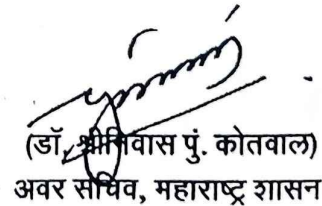 (डॉ. श्रीनिवास पुं. कोतवाल)
अवर सचिव, महाराष्ट्र शासन